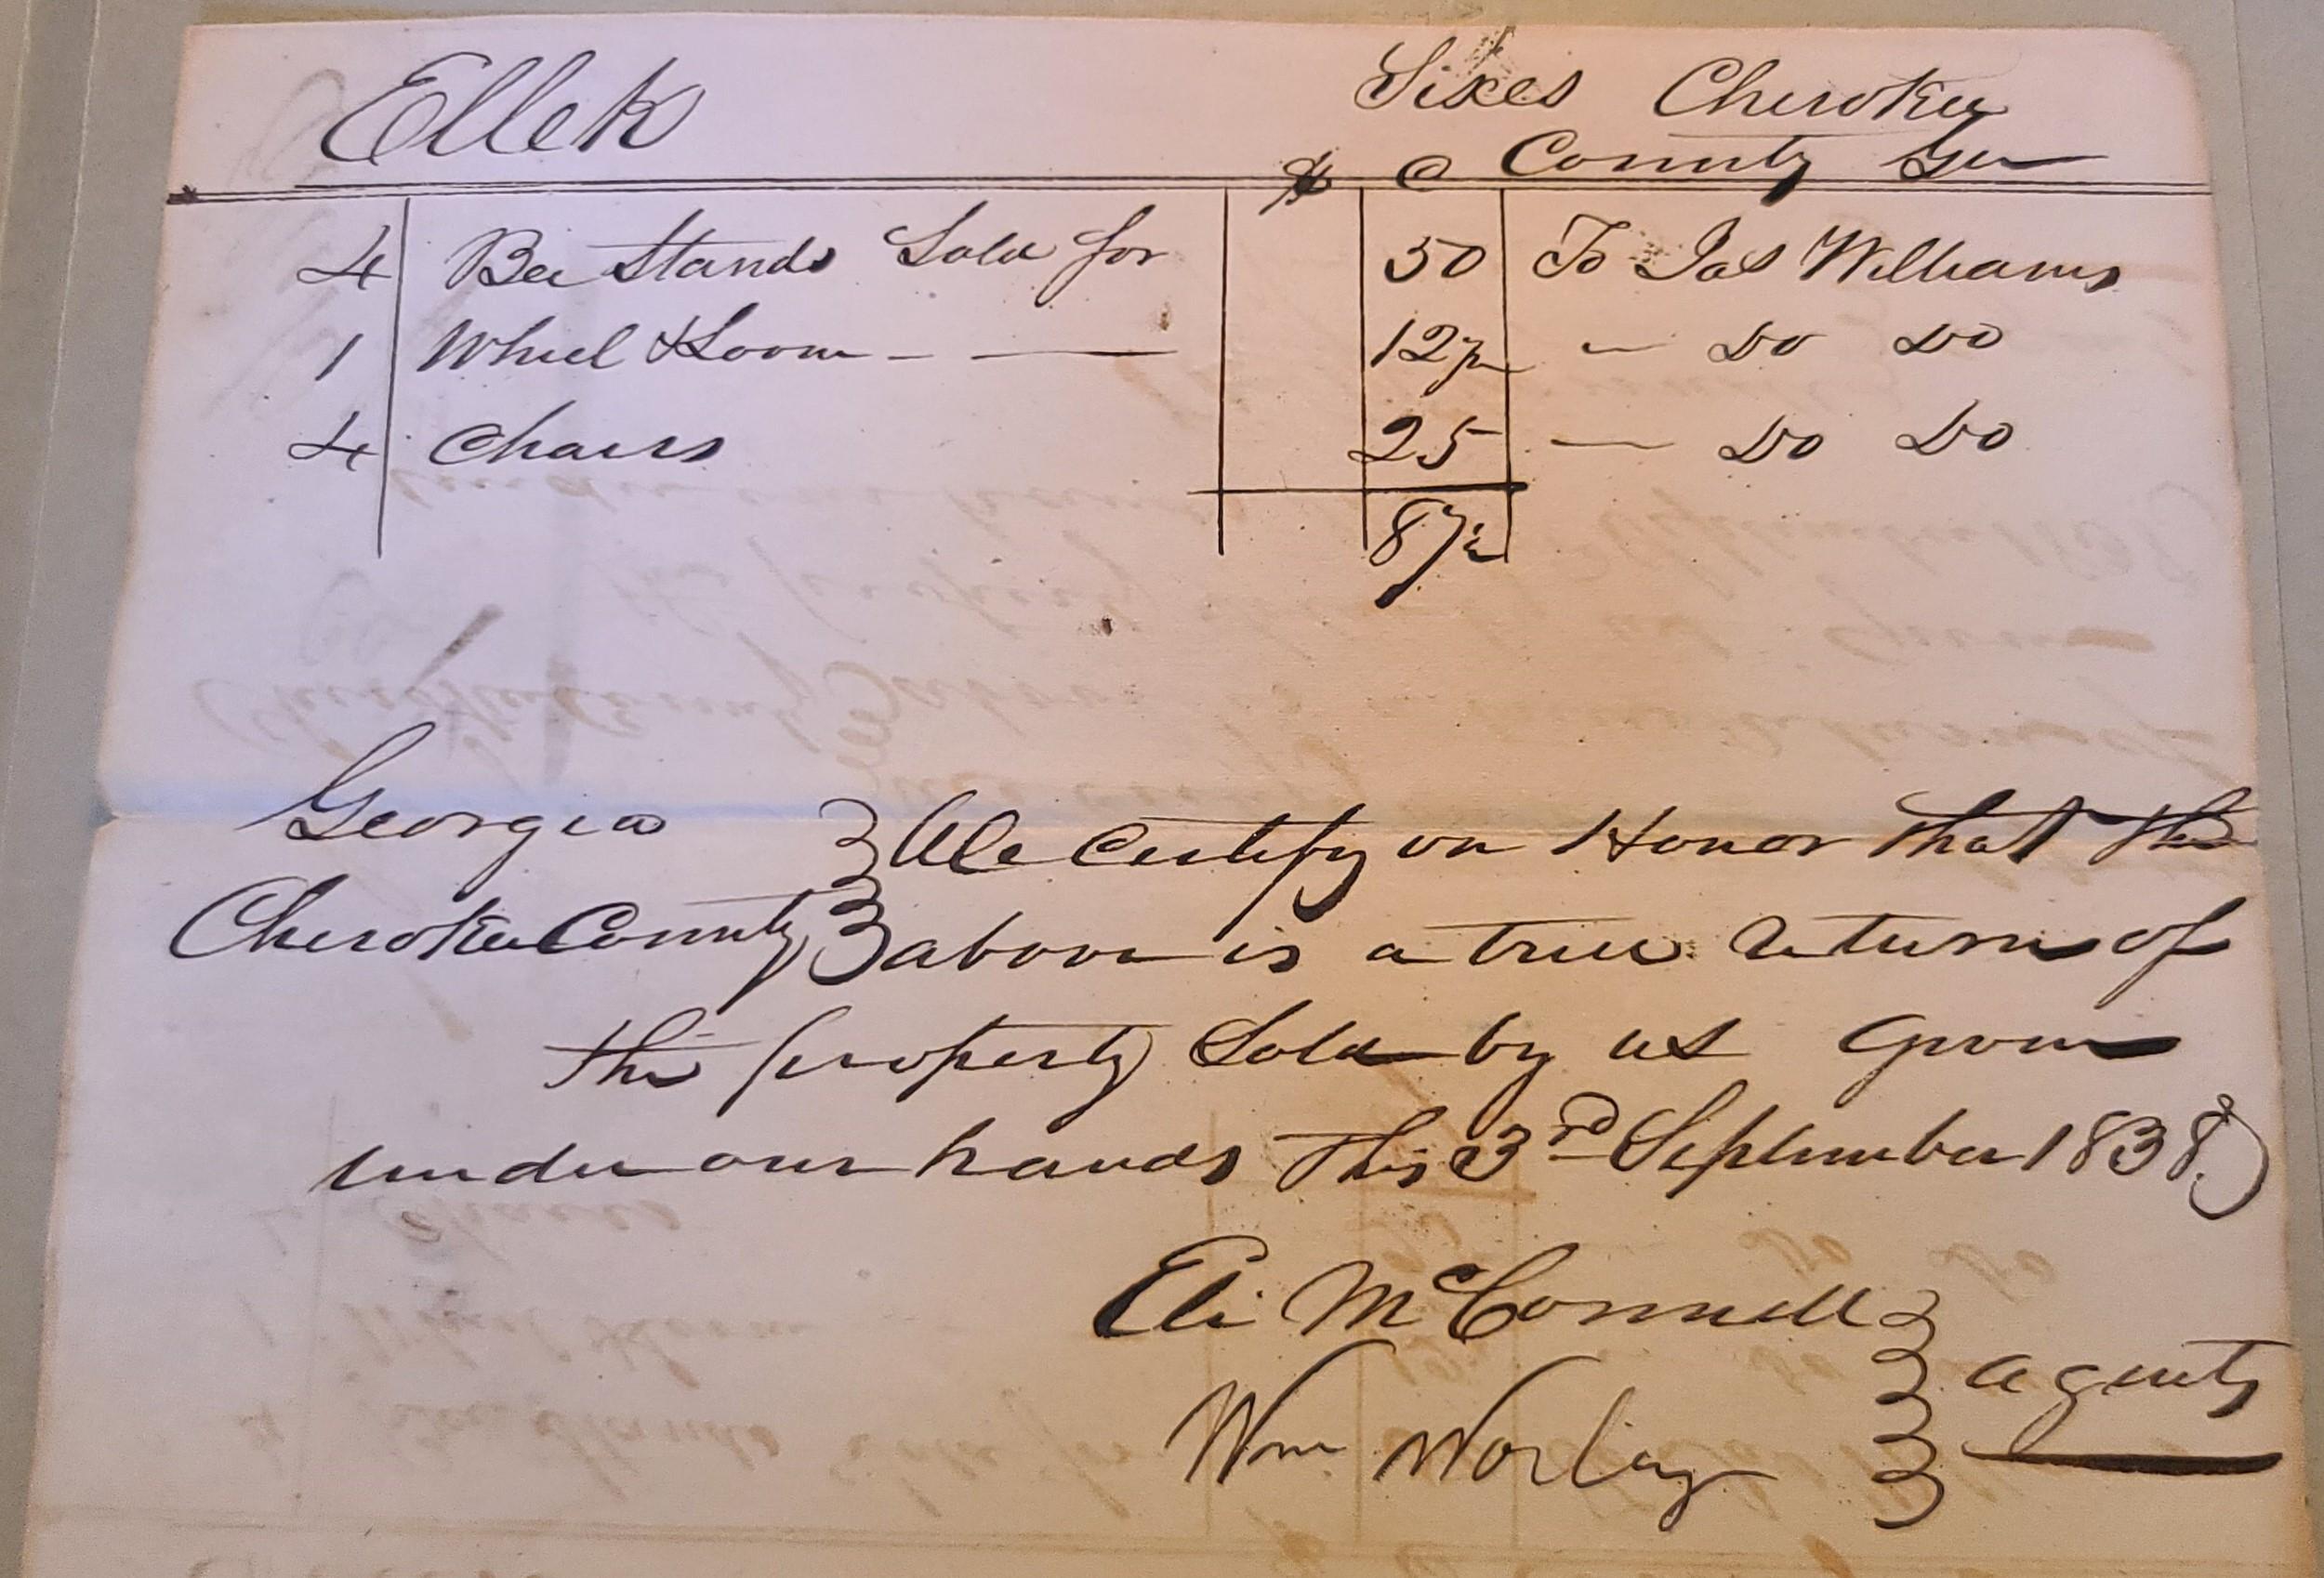 Ellek Sixes Cherokee
$ C County Ga
4 Bee Stands Sold for 50 To Jas Williams
1 Wheel & Loom - — 12½ — Do Do
4 Chairs 25 — Do Do
87½
Georgia } We Certify on Honor that the
Cherokee County } above is a true Return of
the property Sold by us Given
under our hands this 3rd September 1838
Eli McConnell }
} agents
Wm Worley }